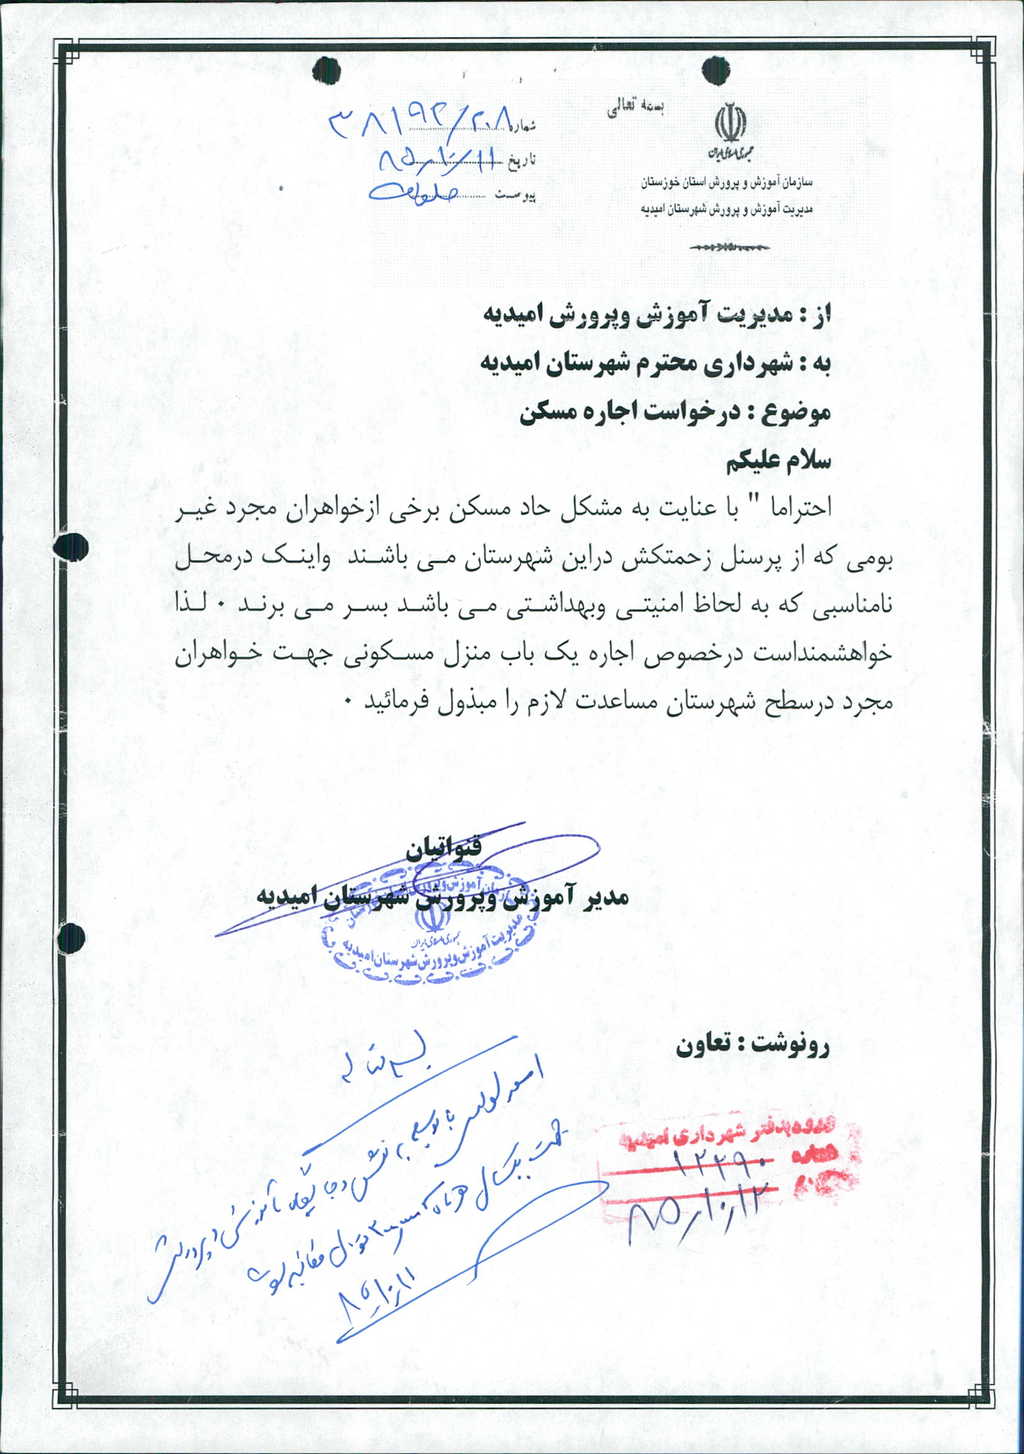 بسمه تعالی
جمهوری اسلامی ایران
سازمان آموزش و پرورش استان خوزستان
مدیریت آموزش و پرورش شهرستان امیدیه
شماره ۳۸۱۹۲/۲۰۸
تاریخ
پیوست
از : مدیریت آموزش وپرورش امیدیه
به : شهرداری محترم شهرستان امیدیه
موضوع : درخواست اجاره مسکن
سلام علیکم
احتراما " با عنایت به مشکل حاد مسکن برخی ازخواهران مجرد غیر
بومی که از پرسنل زحمتکش دراین شهرستان می باشند واینک درمحل
نامناسبی که به لحاظ امنیتی وبهداشتی می باشد بسر می برند ۰ لذا
خواهشمنداست درخصوص اجاره یک باب منزل مسکونی جهت خواهران
مجرد درسطح شهرستان مساعدت لازم را مبذول فرمائید ۰
قنواتیان
مدیر آموزش وپرورش شهرستان امیدیه
سازمان آموزش و پرورش استان خوزستان
جمهوری اسلامی ایران
مدیریت آموزش و پرورش شهرستان امیدیه
رونوشت : تعاون
ورود بدفتر شهرداری امیدیه
شماره ۱۲۲۹۰
۸۵/۱۰/۱۲
بسمه تعالی
با توجه به نقش و جایگاه آموزش و پرورش
جهت یکسال
۸۵/۱۰/۱۱